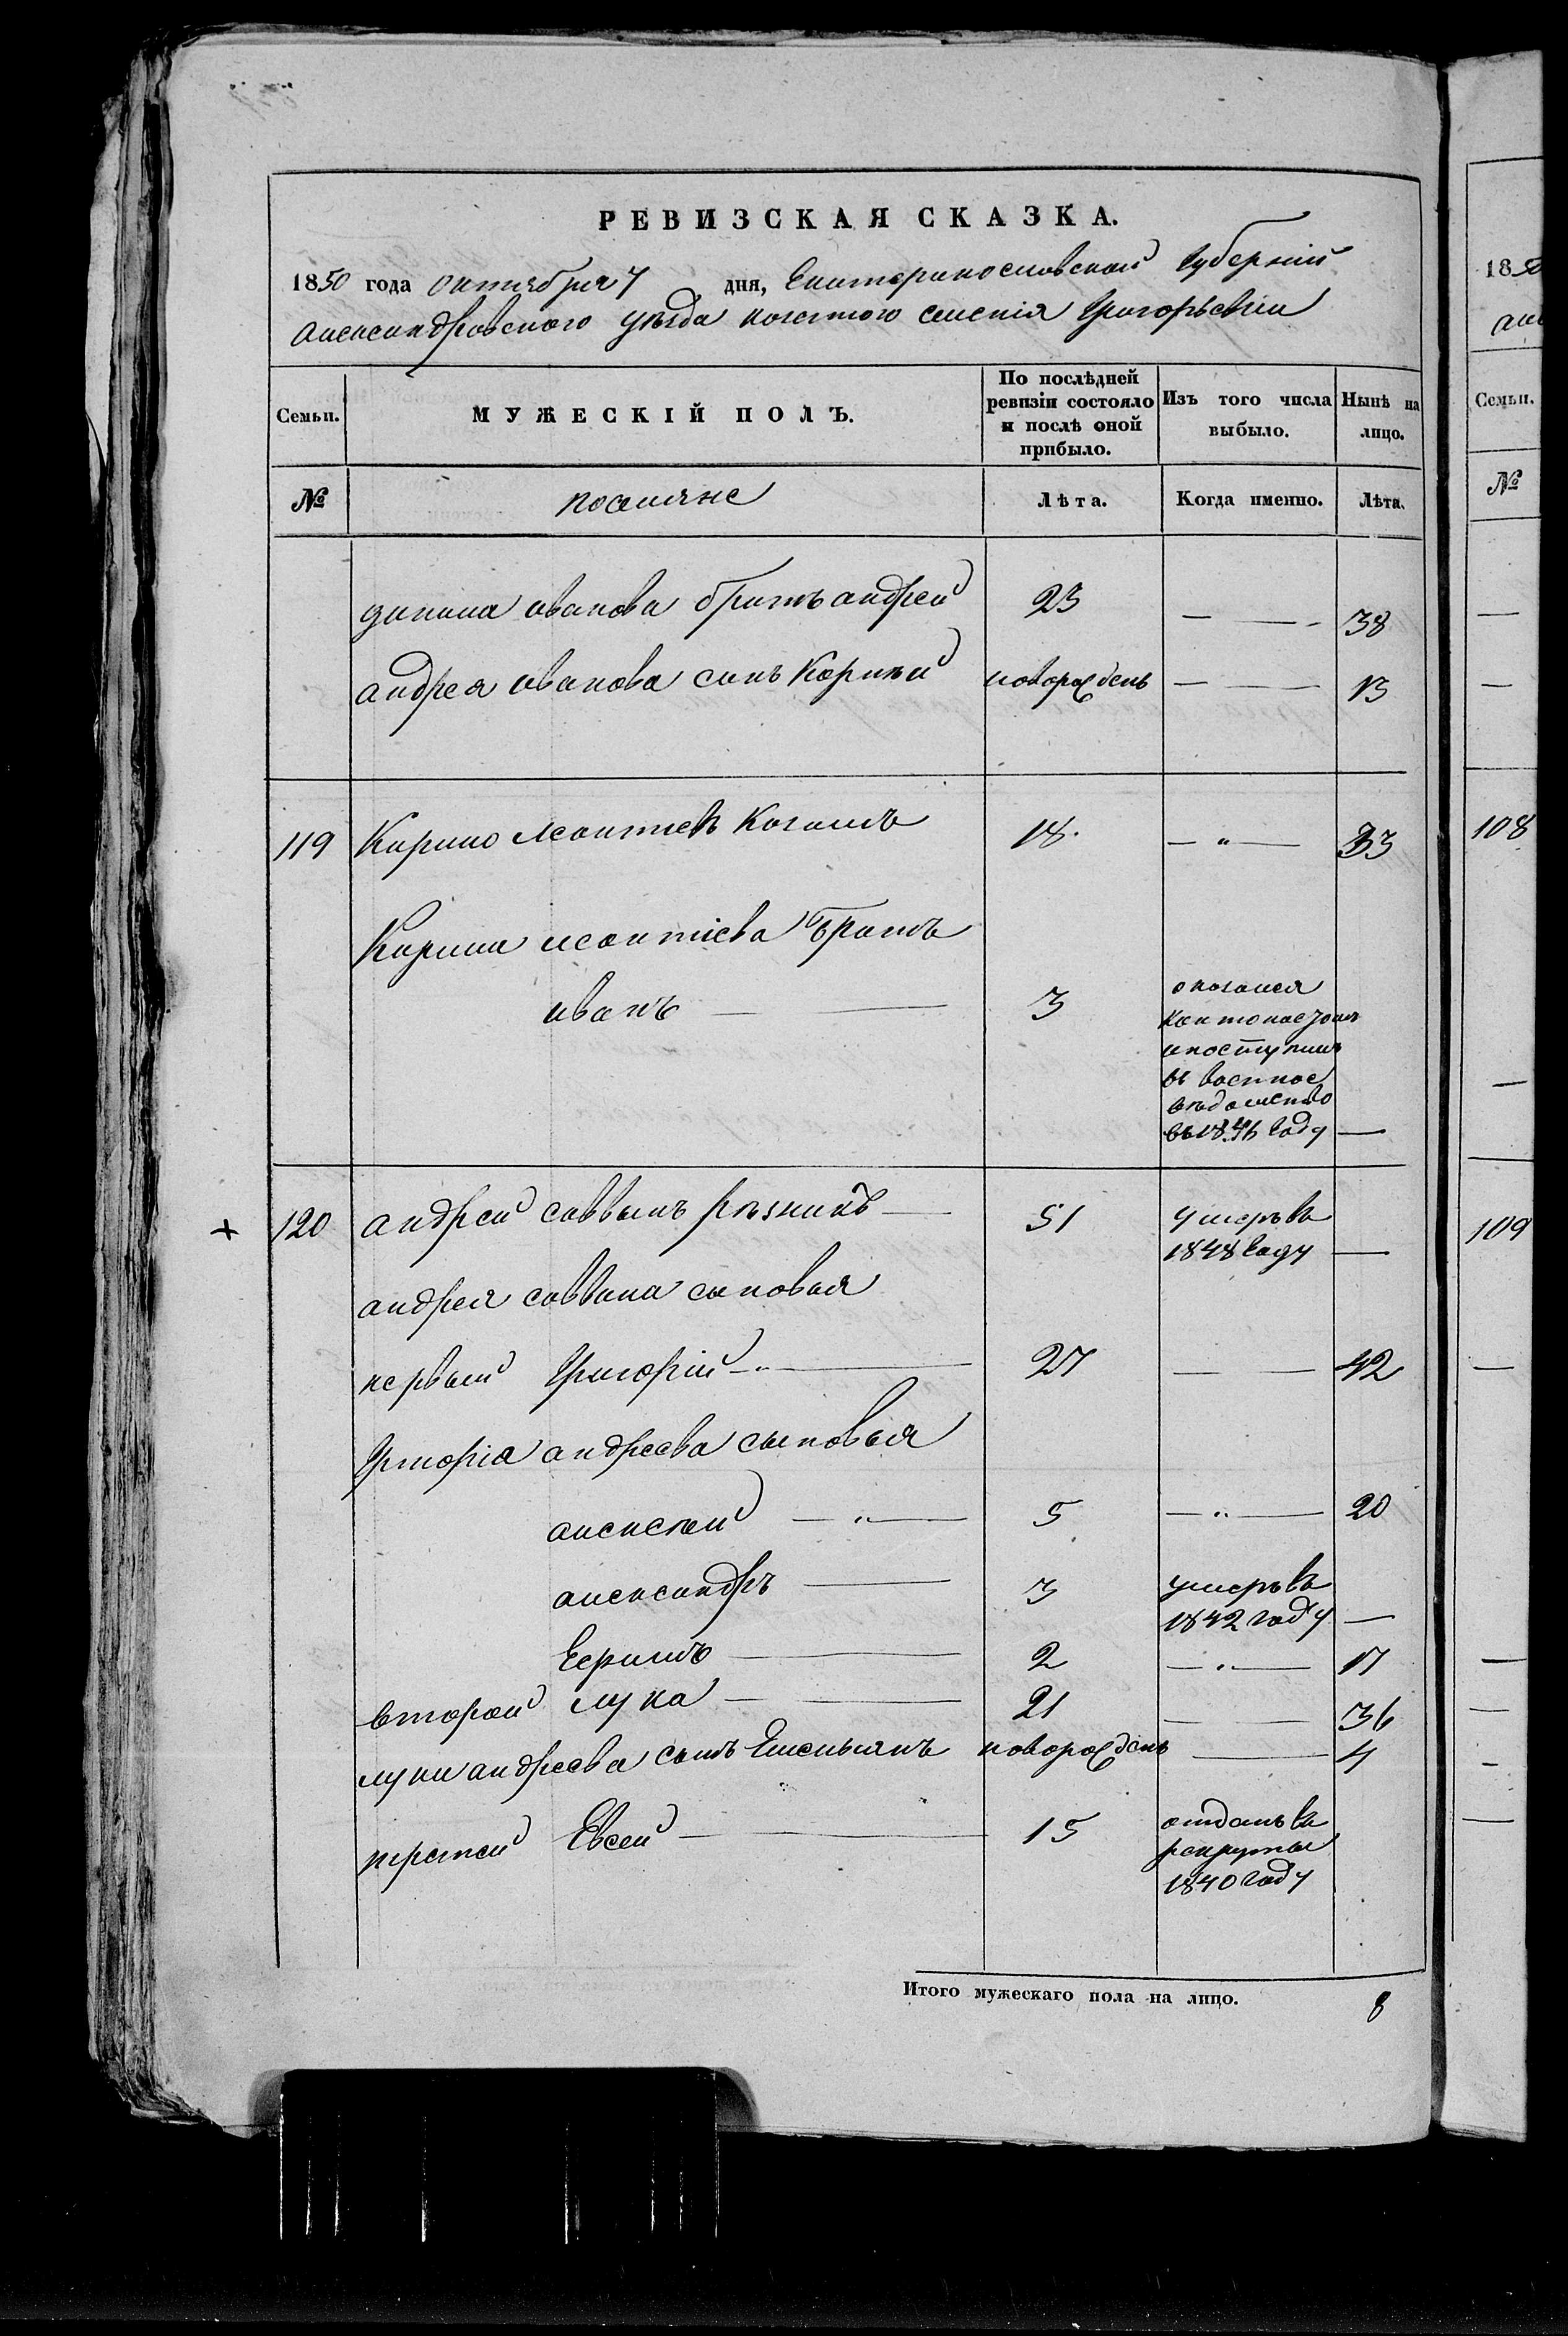 РЕВИЗСКАЯ СКАЗКА.
1850 года октября 7 дня, Екатеринославской Губернии
александровского уѣзда казенного селенія Григорьевки
Семьи.
МУЖЕСКІЙ ПОЛЪ.
По послѣдней ревизіи состояло и послѣ оной прибыло.
Изъ того числа выбыло.
Нынѣ на лицо.
№
поселяне
Лѣта.
Когда именно.
Лѣта.
иванова братъ андрей 23 — 38
андрея иванова синъ Корнѣй новорожденъ — 13
119 Кирило леонтиевъ 18. — " — 33
Кирила леонтіева братъ
иванъ — 3
оказался
кантонистомъ
и поступилъ
въ военное
вѣдомство
въ 1846 году —
+ 120 андрей саввинъ рѣзникъ — 51 умеръ въ
1848 году —
андрея саввина сыновья
первый Григорій — " — 27 — 42
Григорія андреева сыновья
алексѣй — " — 5 — " — 20
александръ — 3 умеръ въ
1842 году —
Герасимъ — 2 — " — 17
второй лука — 21 — 36
луки андреева сынъ Емельянъ новорожденъ — 4
третій Евсей — 15 отданъ въ
рекруты
1840 году
Итого мужескаго пола на лицо. 8
1850
Семьи.
№
108
109